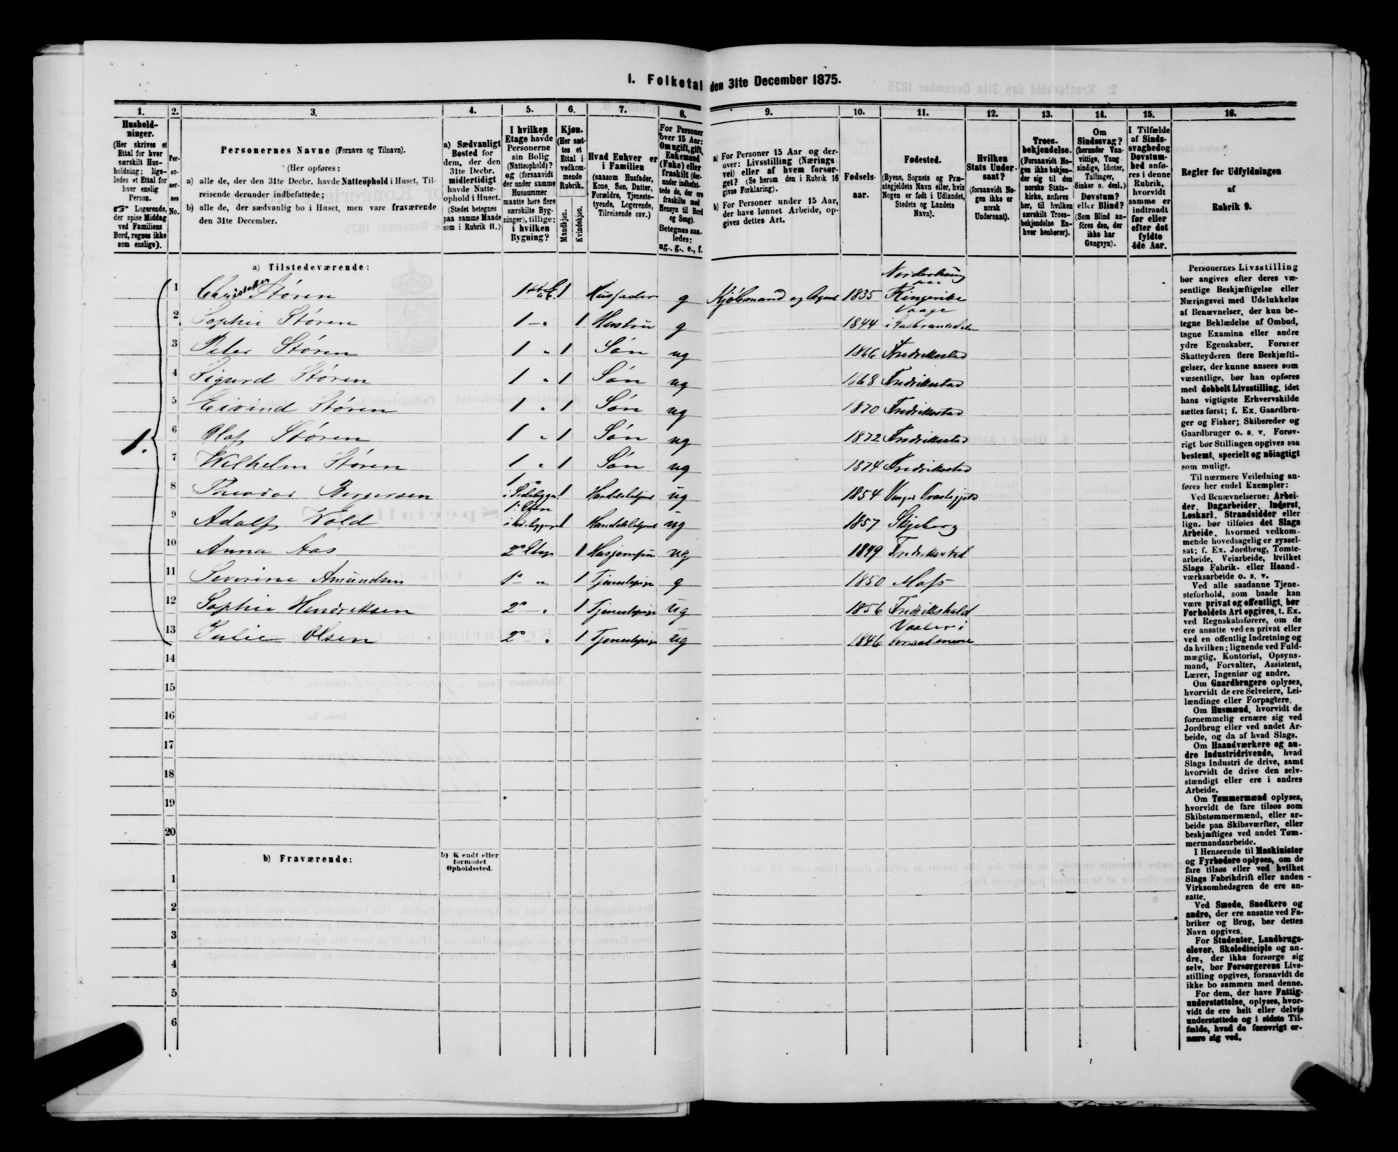 1. Folketal den 31te December 1875.
1. 2. 3. 4. 5. 6. 7. 8. 9. 10. 11. 12. 13. 14. 15. 16.
Hushold-
ninger.
(Her skrives et
Ettal for hver
særskilt Hus-
holdning; lige-
ledes et Ettal for
hver enslig
Person.
☞ Logerende,
der spise Middag
ved Familiens
Bord, regnes ikke
som enslige).
Per-
so-
ner-
nes
No.
Personernes Navne (Fornavn og Tilnavn).
(Her opføres:
a) alle de, der den 31te Decbr. havde Natteophold i Huset, Til-
reisende derunder indbefattede;
b) alle de, der sædvanlig bo i Huset, men vare fraværende
den 31te December.
a) Sædvanligt
Bosted for
dem, der den
31te Decbr.
midlertidigt
havde Natte-
ophold i Huset.
(Stedet betegnes
paa samme Maade
som i Rubrik 11.)
I hvilken
Etage havde
Personerne
sin Bolig
(Natteophold)?
og (forsaavidt
der under samme
Husnummer
maatte høre flere
særskilte Byg-
ninger), tillige:
i hvilken
Bygning?
Kjøn.
(Her sæt-
tes et
Ettal i
vedkom-
mende
Rubrik.
Mandkjøn.
Kvindekjøn.
Hvad Enhver er
i Familien
(saasom Husfader,
Kone, Søn, Datter,
Forældre, Tjeneste-
tyende, Logerende,
Tilreisende osv.)
For Personer
over 15 Aar:
Om ugift, gift,
Enkemand
(Enke) eller
fraskilt (der-
under indbefat-
tede de, der ere
fraskilte med
Hensyn til Bord
og Seng)
Betegnes saa-
ledes:
ug., g., e., f.
a) For Personer 15 Aar og der-
over: Livsstilling (Nærings-
vei) eller af hvem forsør-
get? (Se herom den i Rubrik 16
givne Forklaring).
b) For Personer under 15 Aar,
der have lønnet Arbeide, op-
gives dettes Art.
Fødsels-
aar.
Fødested.
(Byens, Sognets og Præ-
stegjeldets Navn eller, hvis
Nogen er født i Udlandet,
Stedets og Landets
Navn).
Hvilken
Stats Under-
saat?
(forsaavidt No-
gen ikke er
norsk
Undersaat).
Troes-
bekjendelse.
(Forsaavidt No-
gen ikke bekjen-
der sig til den
norske Stats-
kirke, anføres
her, til hvilken
særskilt Troes-
bekjendelse En-
hver henhører).
Om
Sindssvag?
(herunder Van-
vittige, Tung-
sindige, Idioter,
Tullinger,
Sinker o. desl.)
Døvstum?
eller Blind?
(Som Blind an-
føres den, der
ikke har
Gangsyn).
I Tilfælde
af Sinds-
svaghed og
Døvstum-
hed anfø-
res i denne
Rubrik,
hvorvidt
samme er
indtraadt
før eller
efter det
fyldte
4de Aar.
Regler for Udfyldningen
af
Rubrik 9.
a) Tilstedeværende:
1.
1 Christopher Støren 1ste 1 Husfader g Kjøbmand og Agent 1835 Norderhaug Ringerike
2 Sophie Støren 1 „ 1 Hustru g 1844 Vaage i Gulbrandsdalen
3 Peter Støren 1 „ 1 Søn ug 1866 Fredriksstad
4 Sigurd Støren 1 „ 1 Søn ug 1868 Fredriksstad
5 Eivind Støren 1 „ 1 Søn ug 1870 Fredriksstad
6 Olaf Støren 1 „ 1 Søn ug 1872 Fredriksstad
7 Wilhelm Støren 1 „ 1 Søn ug 1874 Fredriksstad
8 Theodor Bergersen 1 Handelsbetjent ug 1854
9 Adolf Wold 1 Handelsbetjent ug 1857 Skjeberg
10 Anna Aas 2 Etage 1 ug 1849 Fredriksstad
11 Severine Amundsen 1 „ 1 Tjenestepige g 1850 Moss
12 Sophie Hendriksen 2 „ 1 Tjenestepige ug 1856 Fredrikshald
13 Julie Olsen 2 „ 1 Tjenestepige ug 1846 Vaaler i
14
15
16
17
18
19
20
b) Fraværende:
b) Kjendt eller
formodet
Opholdssted.
1
2
3
4
5
6
Personernes Livsstilling
bør angives efter deres væ-
sentlige Beskjæftigelse eller
Næringsvei med Udelukkelse
af Benævnelser, der kun be-
tegne Beklædelse af Ombud,
tagne Examina eller andre
ydre Egenskaber. Forener
Skatteyderen flere Beskjæfti-
gelser, der kunne ansees som
væsentlige, bør han opføres
med dobbelt Livsstilling, idet
hans vigtigste Erhvervskilde
sættes først; f. Ex. Gaardbru-
ger og Fisker; Skibsreder og
Gaardbruger o. s. v. Forøv-
rigt bør Stillingen opgives saa
bestemt, specielt og nøiagtigt
som muligt.
Til nærmere Veiledning an-
føres her endel Exempler:
Ved Benævnelserne: Arbei-
der, Dagarbeider, Inderst,
Løskarl, Strandsidder eller
lign. bør tilføies det Slags
Arbeide, hvormed vedkom-
mende hovedsagelig er syssel-
sat; f. Ex. Jordbrug, Tomte-
arbeide, Veiarbeide, hvilket
Slags Fabrik- eller Haand-
værksarbeide o. s. v.
Ved alle saadanne Tjene-
steforhold, som baade kan
være privat og offentligt, bør
Forholdets Art opgives, t. Ex.
ved Regnskabsførere, om de
ere ansatte ved en privat eller
ved en offentlig Indretning og
da hvilken; lignende ved Fuld-
mægtig, Kontorist, Opsyns-
mand, Forvalter, Assistent,
Lærer, Ingeniør og andre.
Om Gaardbrugere oplyses,
hvorvidt de ere Selveiere, Lei-
lændinge eller Forpagtere.
Om Husmænd, hvorvidt de
fornemmelig ernære sig ved
Jordbrug eller ved andet Ar-
beide, og da af hvad Slags.
Om Haandværkere og an-
dre Industridrivende, hvad
Slags Industri de drive, samt
hvorvidt de drive den selv-
stændigt eller ere i andres
Arbeide.
Om Tømmermænd oplyses,
hvorvidt de fare tilsøs som
Skibstømmermænd, eller ar-
beide paa Skibsværfter, eller
beskjæftiges ved andet Tøm-
mermandsarbeide.
I Henseende til Maskinister
og Fyrbødere oplyses, om de
fare tilsøs eller ved hvilket
Slags Fabrikdrift eller anden
Virksomhedsgren de ere an-
satte.
Ved Smede, Snedkere og
andre, der ere ansatte ved Fa-
briker og Brug, bør dettes
Navn opgives.
For Studenter, Landbrugs-
elever, Skoledisciple og an-
dre, der ikke forsørge sig
selv, bør Forsørgerens Livs-
stilling opgives, forsaavidt de
ikke bo sammen med denne.
For dem, der have Fattig-
understøttelse, oplyses, hvor-
vidt de ere helt eller delvis
understøttede og i sidste Til-
fælde, hvad de forøvrigt er-
nære sig ved.